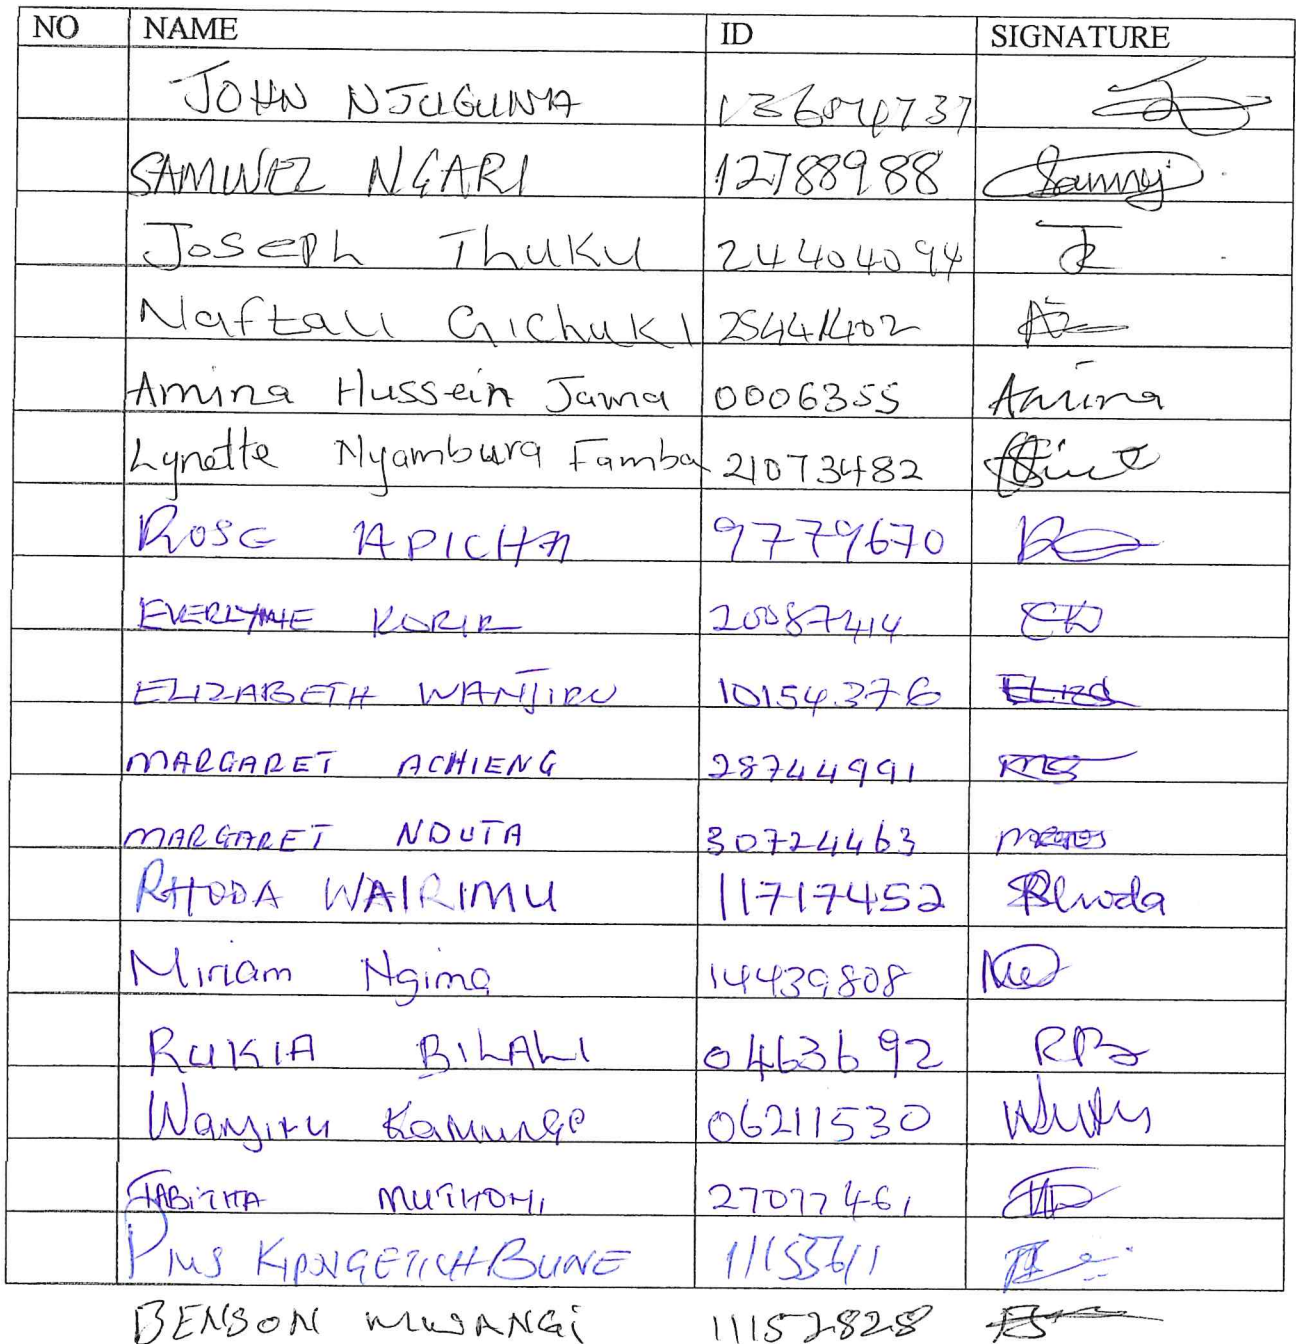 NO NAME ID SIGNATURE
JOHN NJUGUNA
SAMUEL NGARI 12788988 Sammy
Joseph Thuku 24404094
Naftali Gichuki
Amina Hussein Jama 0006355 Amina
Lynette Nyambura Famba 21073482
ROSE APICHA 9779670
EVERLYNE KORIR 20087414 EK
ELIZABETH WANJIRU 10154376
MARGARET ACHIENG 28744991
MARGARET NDUTA 30724463
RHODA WAIRIMU 11717452 Rhoda
Miriam Ngima 14439808
RUKIA BILALI 0463692 RB
Wanjiru Kamunge 06211530
TABITHA MUTHONI 27077461
Pius KIPNGETICH BUNE
BENSON MWANGI 11152828